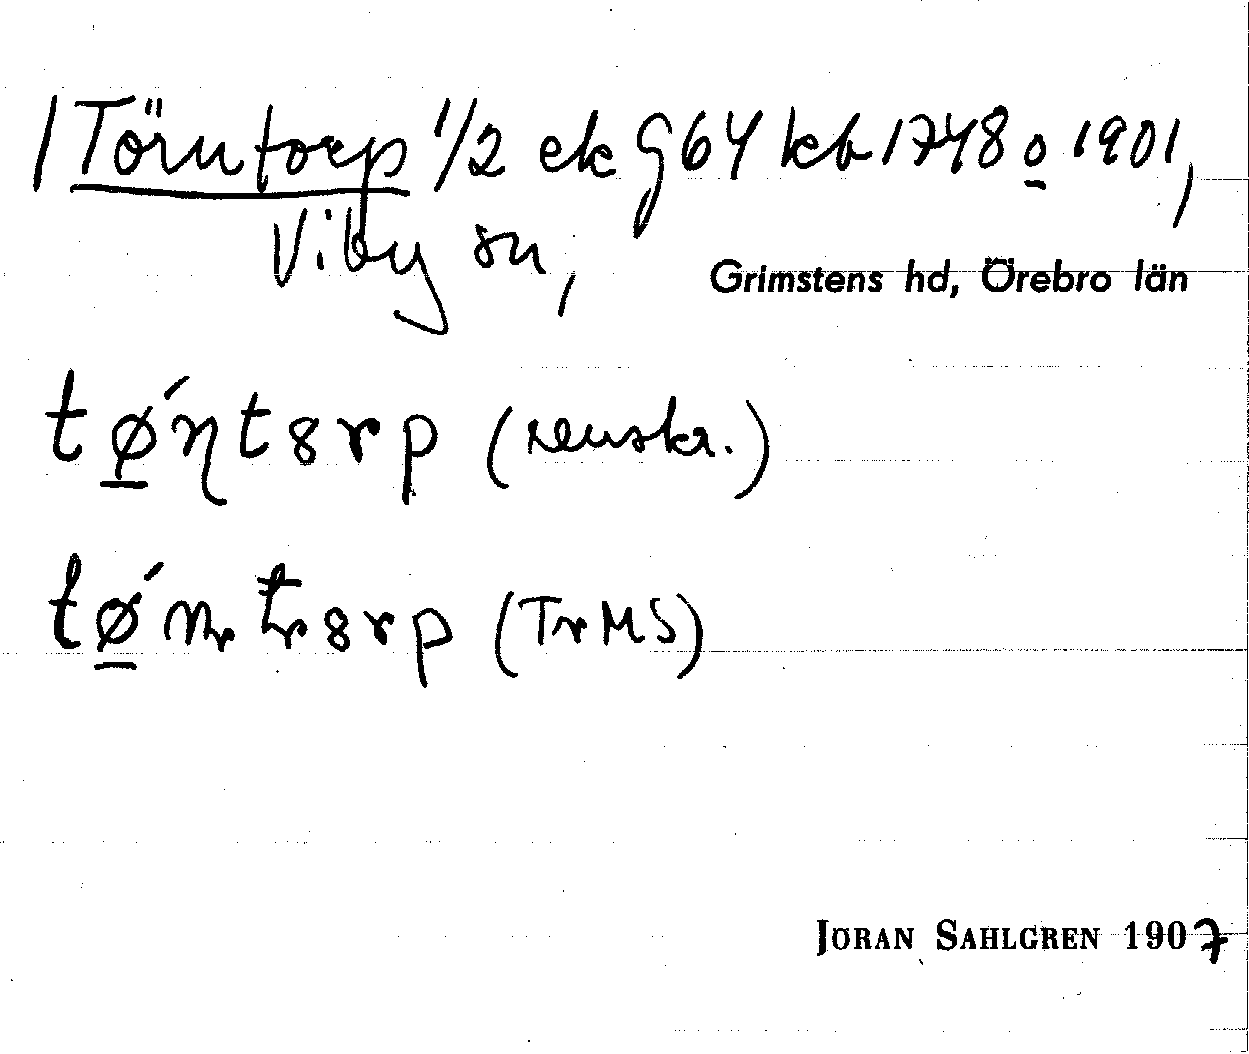 / Törntorp 1/2 ek G64 kb 1748 o 1901,
Viby sn,
Grimstens hd, Örebro län
tǿn̨tȣrp (renskr.)
(TrMS)
JÖRAN SAHLGREN 1907